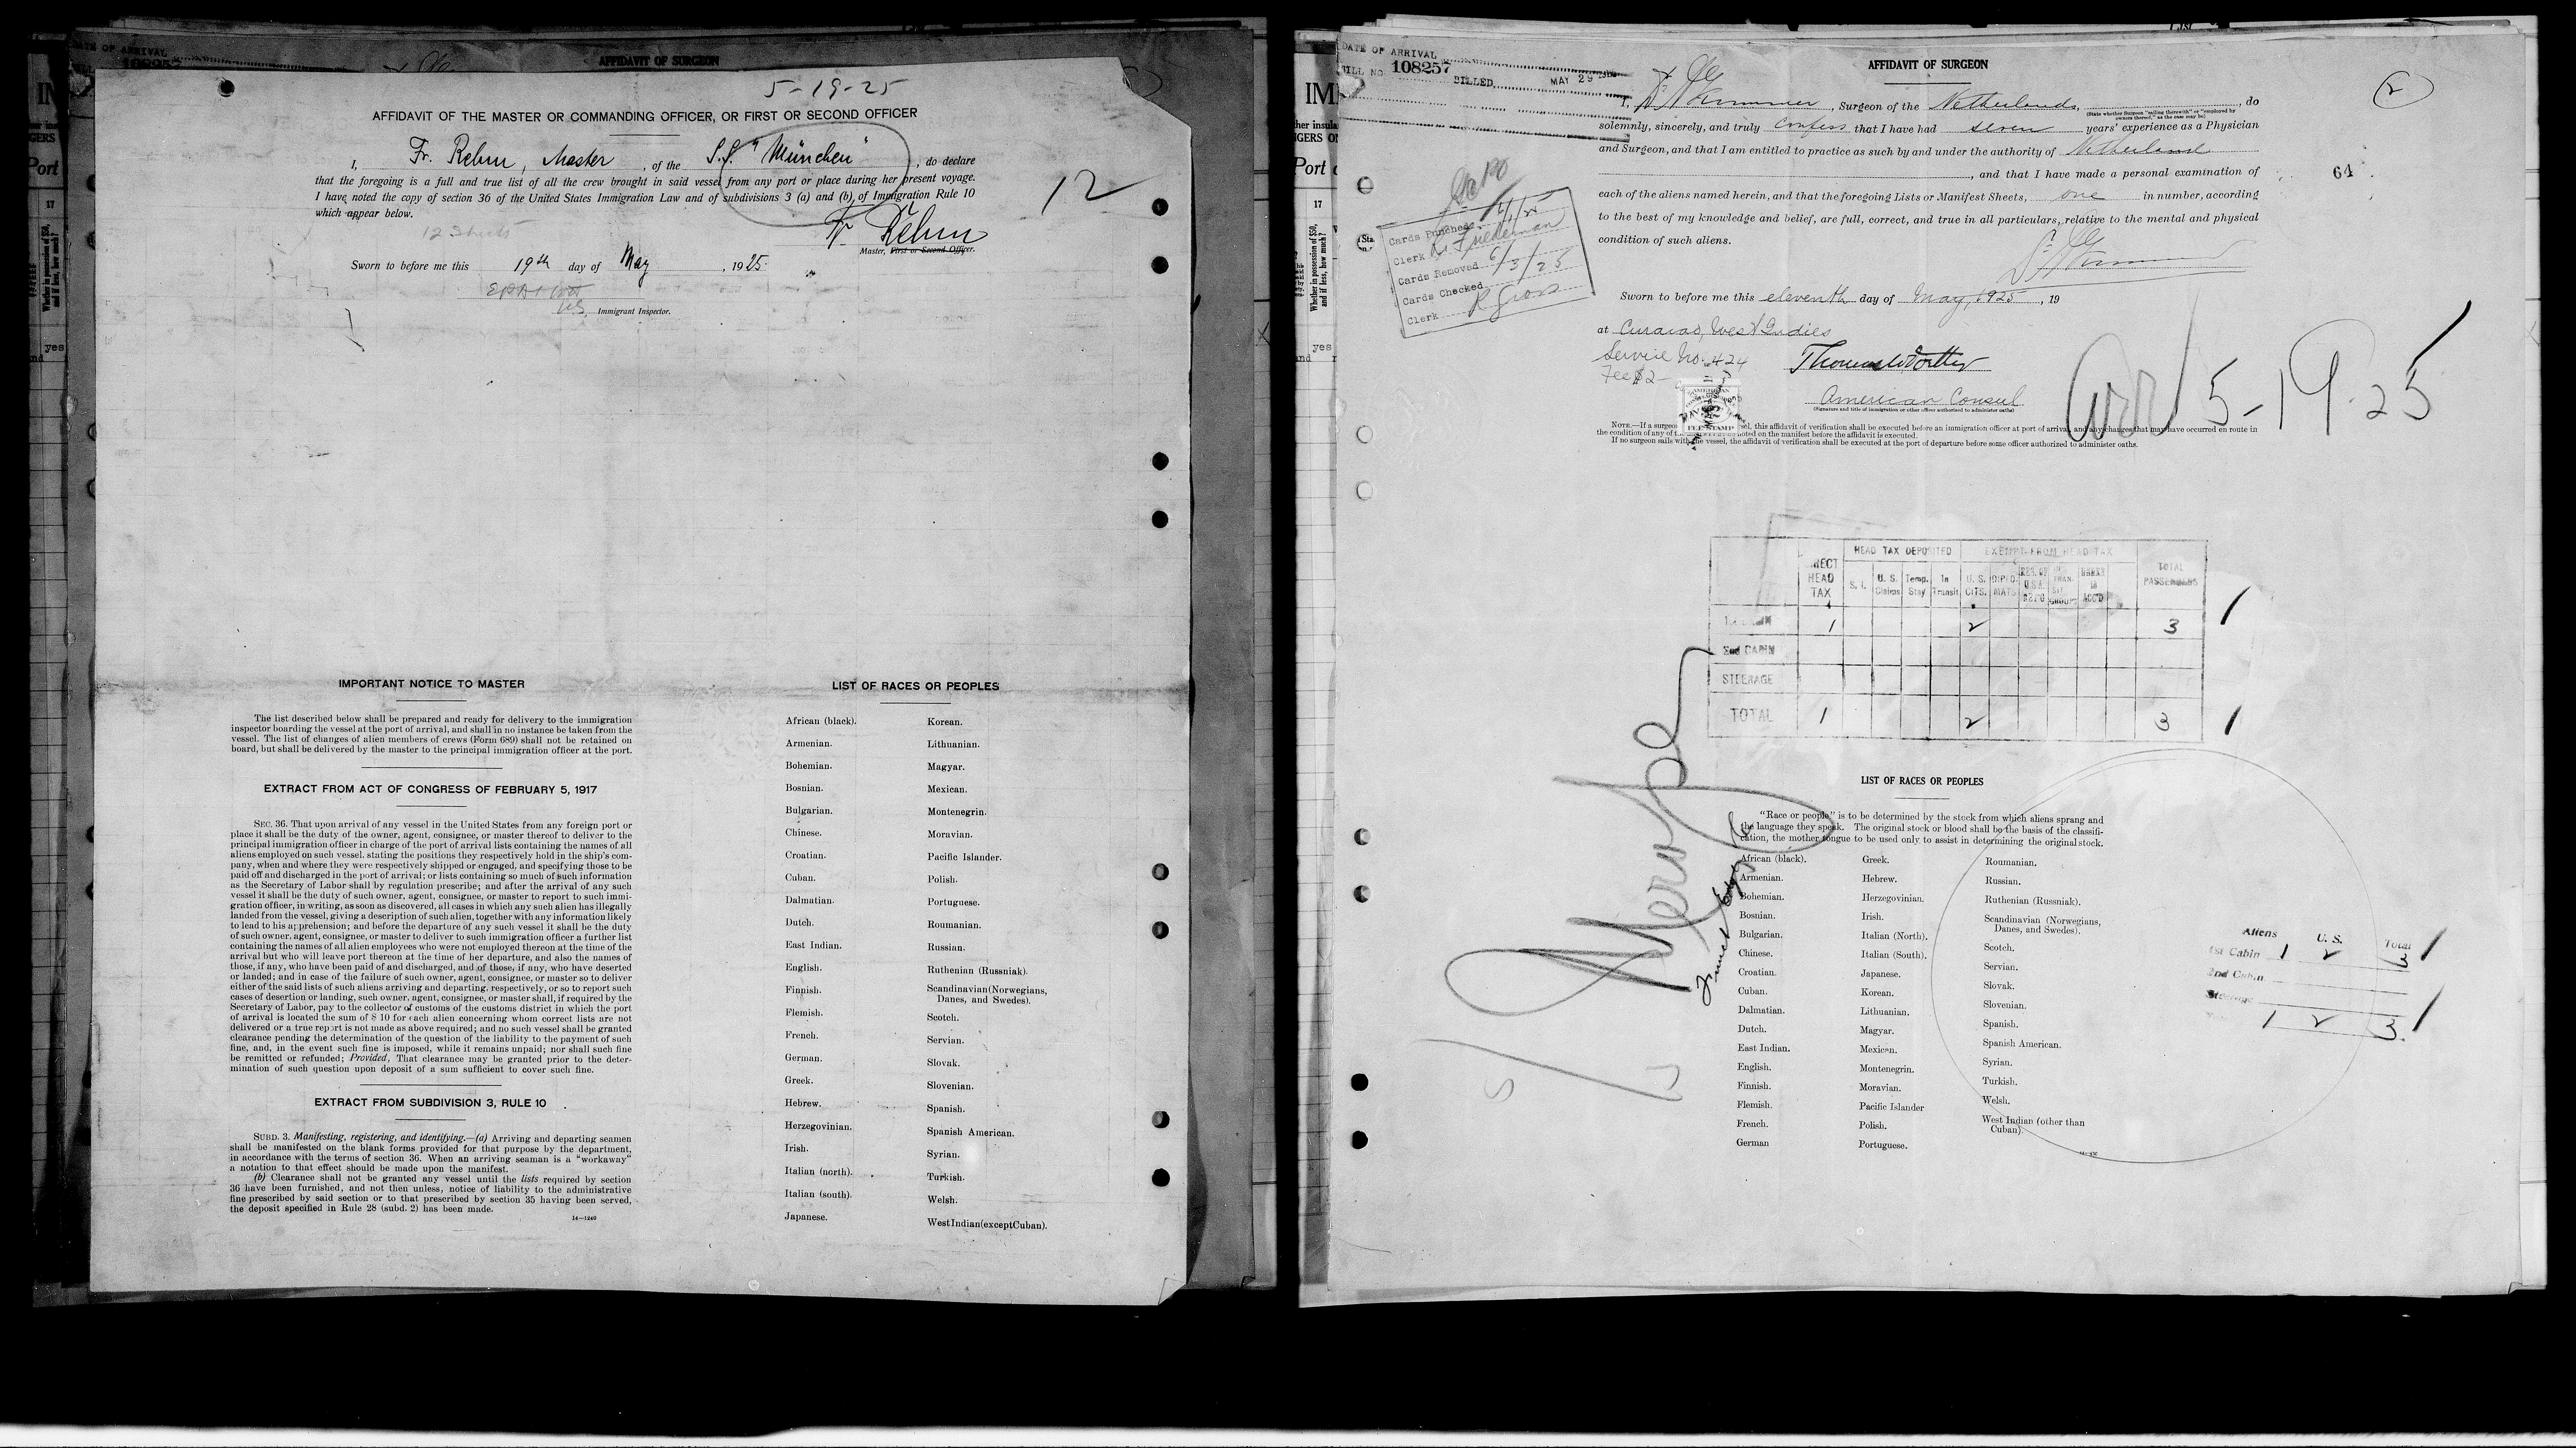 DATE OF ARRIVAL
AFFIDAVIT OF SURGEON
5-19-25
AFFIDAVIT OF THE MASTER OR COMMANDING OFFICER, OR FIRST OR SECOND OFFICER
I, Fr. Rehm, Master, of the S.S. "München", do declare
that the foregoing is a full and true list of all the crew brought in said vessel from any port or place during her present voyage.
I have noted the copy of section 36 of the United States Immigration Law and of subdivisions 3 (a) and (b) of Immigration Rule 10
which appear below.
12
12 Sheets
Fr. Rehm
Master, First or Second Officer.
Sworn to before me this 19th day of May, 1925.
Immigrant Inspector.
IMPORTANT NOTICE TO MASTER
The list described below shall be prepared and ready for delivery to the immigration
inspector boarding the vessel at the port of arrival, and shall in no instance be taken from the
vessel. The list of changes of alien members of crews (Form 689) shall not be retained on
board, but shall be delivered by the master to the principal immigration officer at the port.
EXTRACT FROM ACT OF CONGRESS OF FEBRUARY 5, 1917
SEC. 36. That upon arrival of any vessel in the United States from any foreign port or
place it shall be the duty of the owner, agent, consignee, or master thereof to deliver to the
principal immigration officer in charge of the port of arrival lists containing the names of all
aliens employed on such vessel, stating the positions they respectively hold in the ship's com-
pany, when and where they were respectively shipped or engaged, and specifying those to be
paid off and discharged in the port of arrival; or lists containing so much of such information
as the Secretary of Labor shall by regulation prescribe; and after the arrival of any such
vessel it shall be the duty of such owner, agent, consignee, or master to report to such immi-
gration officer, in writing, as soon as discovered, all cases in which any such alien has illegally
landed from the vessel, giving a description of such alien, together with any information likely
to lead to his apprehension; and before the departure of any such vessel it shall be the duty
of such owner, agent, consignee, or master to deliver to such immigration officer a further list
containing the names of all alien employees who were not employed thereon at the time of the
arrival but who will leave port thereon at the time of her departure, and also the names of
those, if any, who have been paid of and discharged, and of those, if any, who have deserted
or landed; and in case of the failure of such owner, agent, consignee, or master so to deliver
either of the said lists of such aliens arriving and departing, respectively, or so to report such
cases of desertion or landing, such owner, agent, consignee, or master shall, if required by the
Secretary of Labor, pay to the collector of customs of the customs district in which the port
of arrival is located the sum of $ 10 for each alien concerning whom correct lists are not
delivered or a true report is not made as above required; and no such vessel shall be granted
clearance pending the determination of the question of the liability to the payment of such
fine, and, in the event such fine is imposed, while it remains unpaid; nor shall such fine
be remitted or refunded; Provided, That clearance may be granted prior to the deter-
mination of such question upon deposit of a sum sufficient to cover such fine.
EXTRACT FROM SUBDIVISION 3, RULE 10
SUBD. 3. Manifesting, registering, and identifying.—(a) Arriving and departing seamen
shall be manifested on the blank forms provided for that purpose by the department,
in accordance with the terms of section 36. When an arriving seaman is a "workaway"
a notation to that effect should be made upon the manifest.
(b) Clearance shall not be granted any vessel until the lists required by section
36 have been furnished, and not then unless, notice of liability to the administrative
fine prescribed by said section or to that prescribed by section 35 having been served,
the deposit specified in Rule 28 (subd. 2) has been made.
14—1240
LIST OF RACES OR PEOPLES
African (black).
Armenian.
Bohemian.
Bosnian.
Bulgarian.
Chinese.
Croatian.
Cuban.
Dalmatian.
Dutch.
East Indian.
English.
Finnish.
Flemish.
French.
German.
Greek.
Hebrew.
Herzegovinian.
Irish.
Italian (north).
Italian (south).
Japanese.
Korean.
Lithuanian.
Magyar.
Mexican.
Montenegrin.
Moravian.
Pacific Islander.
Polish.
Portuguese.
Roumanian.
Russian.
Ruthenian (Russniak).
Scandinavian (Norwegians,
Danes, and Swedes).
Scotch.
Servian.
Slovak.
Slovenian.
Spanish.
Spanish American.
Syrian.
Turkish.
Welsh.
West Indian (except Cuban).
DATE OF ARRIVAL
BILL NO. 108257 BILLED MAY 29
AFFIDAVIT OF SURGEON
2
I, Surgeon of the Netherlands, do
(State whether Surgeon "sailing therewith" or "employed by
owners thereof," as the case may be)
solemnly, sincerely, and truly confess that I have had seven years' experience as a Physician
and Surgeon, and that I am entitled to practice as such by and under the authority of Netherland
, and that I have made a personal examination of
64
each of the aliens named herein, and that the foregoing Lists or Manifest Sheets, one in number, according
to the best of my knowledge and belief, are full, correct, and true in all particulars, relative to the mental and physical
condition of such aliens.
Cards Punched
Clerk Friedeman
Cards Removed 6/3/25
Cards Checked
Clerk R Gross
Sworn to before me this eleventh day of May, 1925, 19
at Curacao, West Indies
Service No. 424
Fee $2-
American Consul
(Signature and title of immigration or other officer authorized to administer oaths)
5-19-25
NOTE.—If a surgeon vessel, this affidavit of verification shall be executed before an immigration officer at port of arrival, and any changes that may have occurred en route in
the condition of any of noted on the manifest before the affidavit is executed.
If no surgeon sails with the vessel, the affidavit of verification shall be executed at the port of departure before some officer authorized to administer oaths.
HEAD TAX DEPOSITED EXEMPT FROM HEAD TAX
HEAD TAX S. I. U. S. Claims Temp. Stay In Transit U. S. CITS. TOTAL PASSENGERS
1 2 3 1
2nd CABIN
STEERAGE
TOTAL 1 2 3 1
LIST OF RACES OR PEOPLES
"Race or people" is to be determined by the stock from which aliens sprang and
the language they speak. The original stock or blood shall be the basis of the classifi-
cation, the mother tongue to be used only to assist in determining the original stock.
African (black).
Armenian.
Bohemian.
Bosnian.
Bulgarian.
Chinese.
Croatian.
Cuban.
Dalmatian.
Dutch.
East Indian.
English.
Finnish.
Flemish.
French.
German
Greek.
Hebrew.
Herzegovinian.
Irish.
Italian (North).
Italian (South).
Japanese.
Korean.
Lithuanian.
Magyar.
Mexican.
Montenegrin.
Moravian.
Pacific Islander
Polish.
Portuguese.
Roumanian.
Russian.
Ruthenian (Russniak).
Scandinavian (Norwegians,
Danes, and Swedes).
Scotch.
Servian.
Slovak.
Slovenian.
Spanish.
Spanish American.
Syrian.
Turkish.
Welsh.
West Indian (other than
Cuban).
Aliens U. S. Total
1st Cabin 1 2 3 1
2nd Cabin
Steerage
1 2 3 1